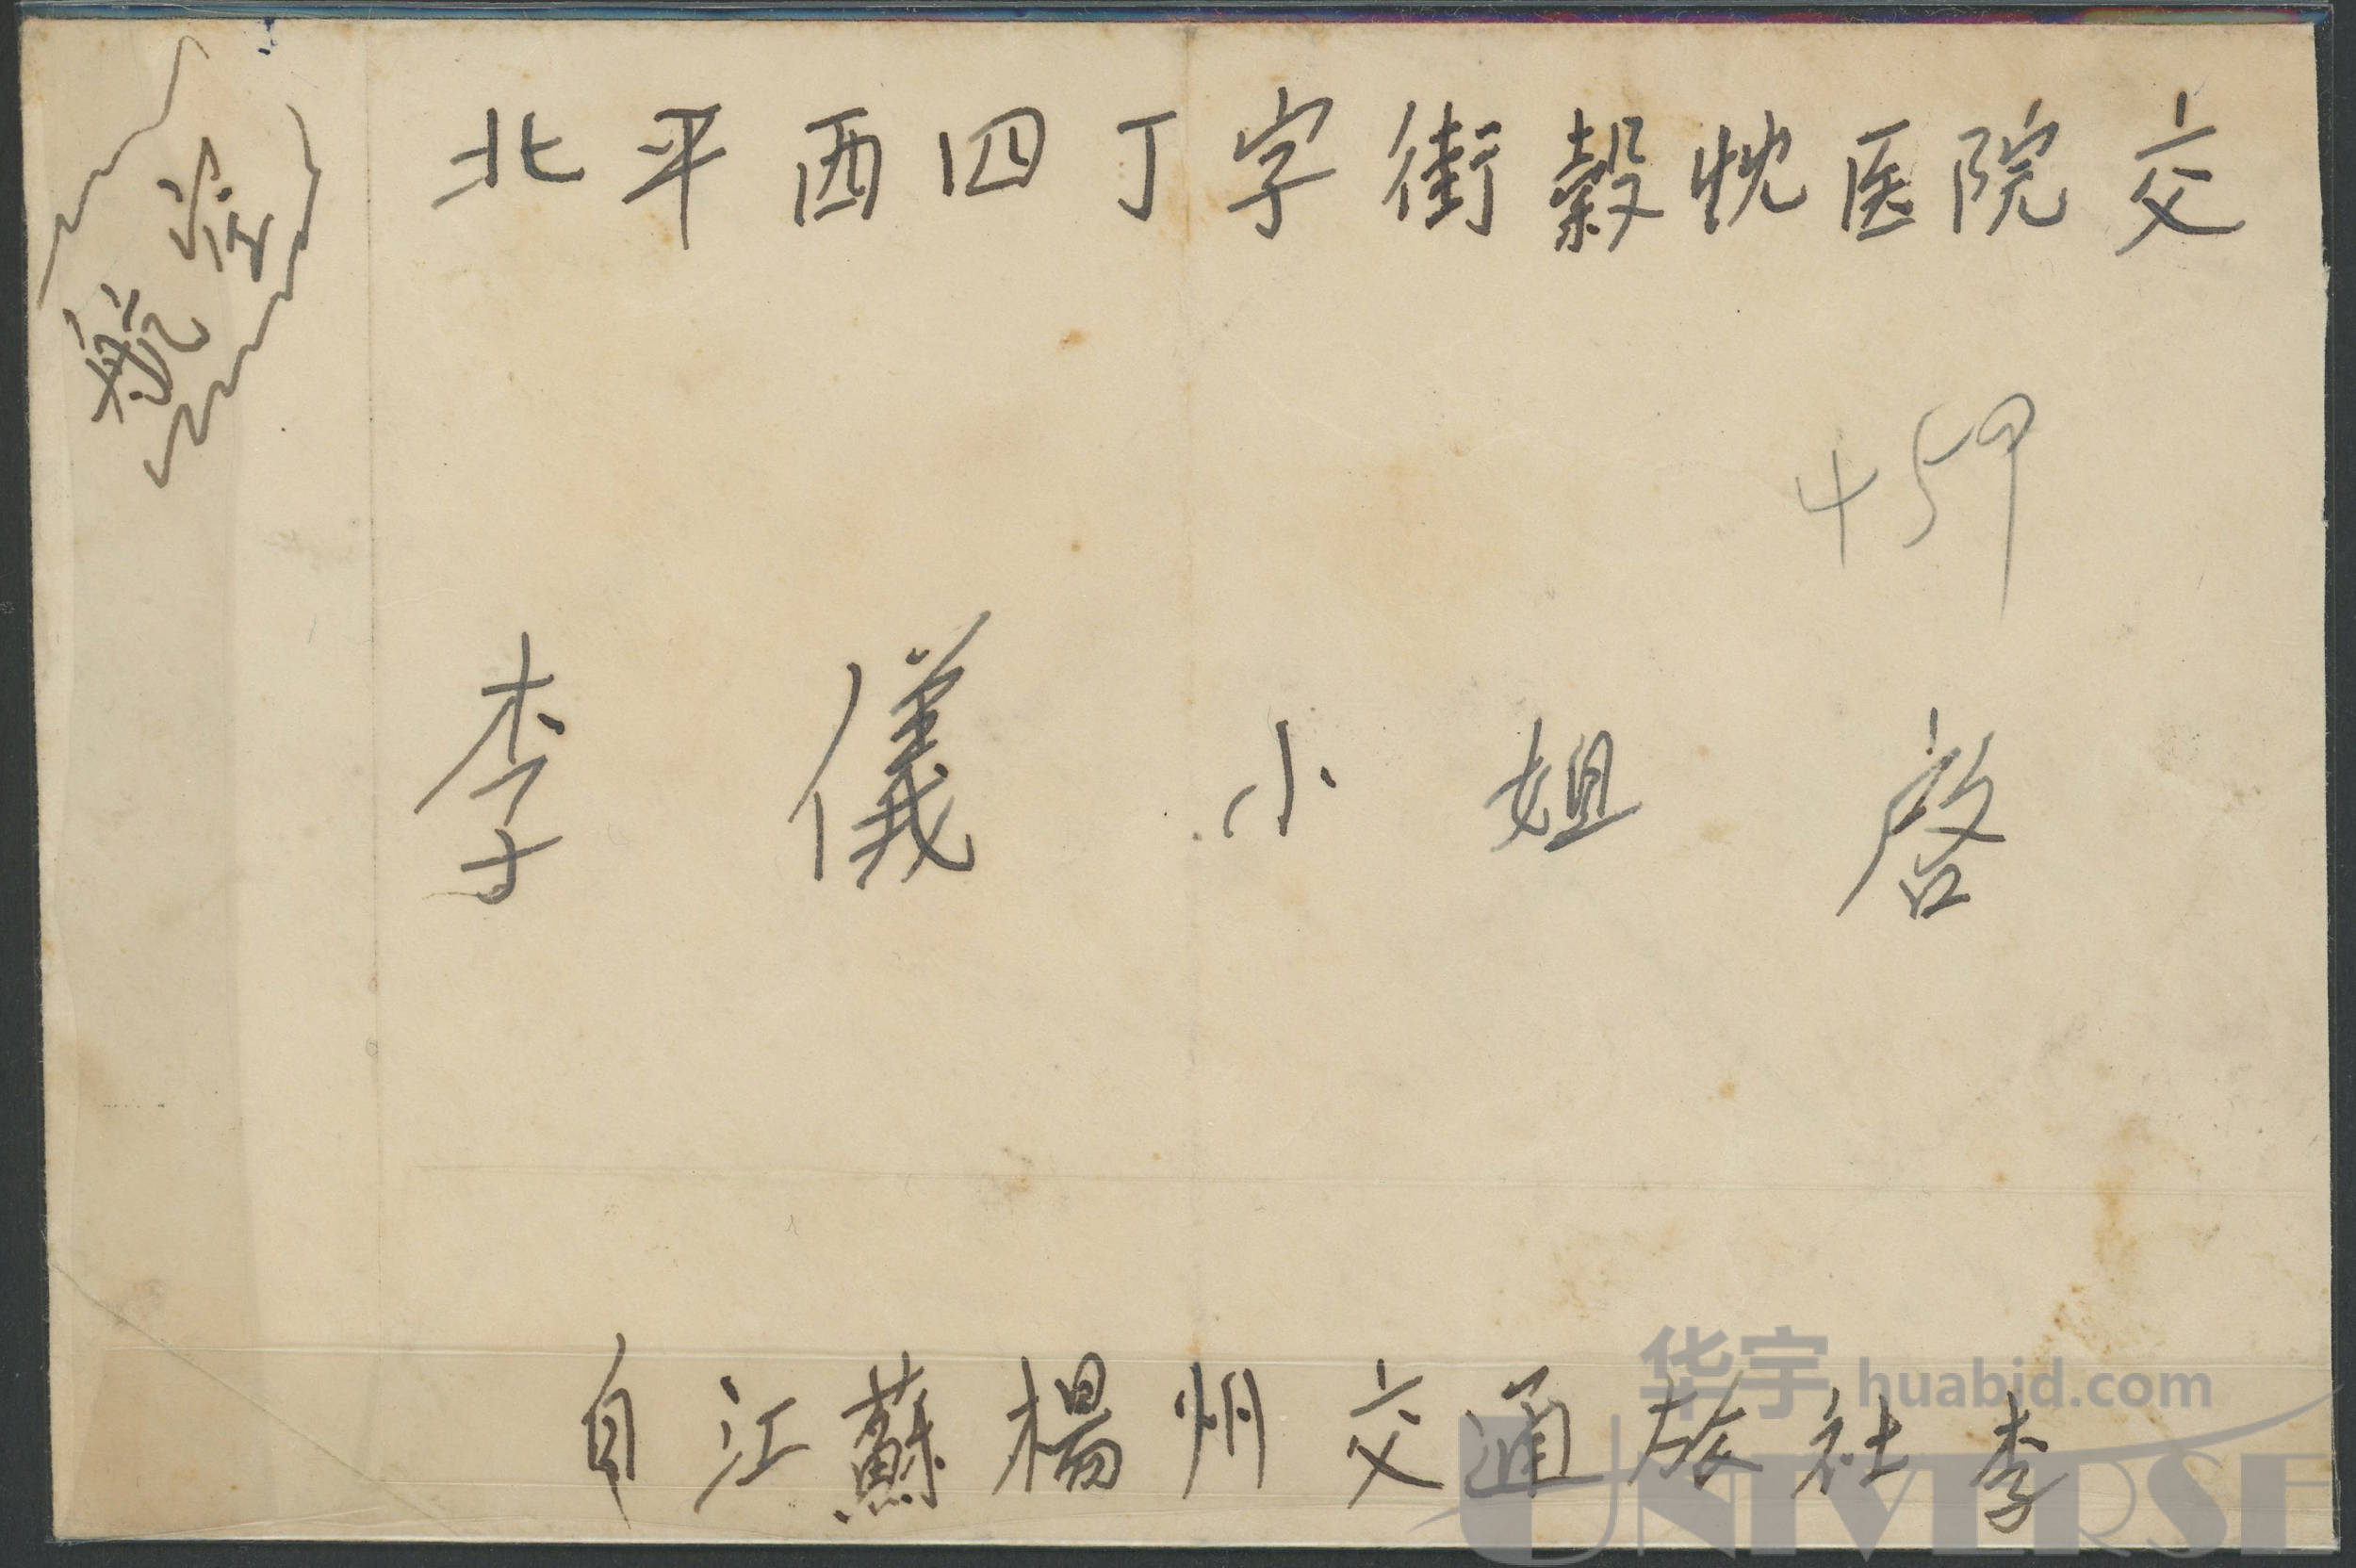 航空
北平西四丁字街穀忱医院交
459
李儀小姐啓
華宇 huabid.com
自江蘇楊州交通旅社李
UNIVERSE